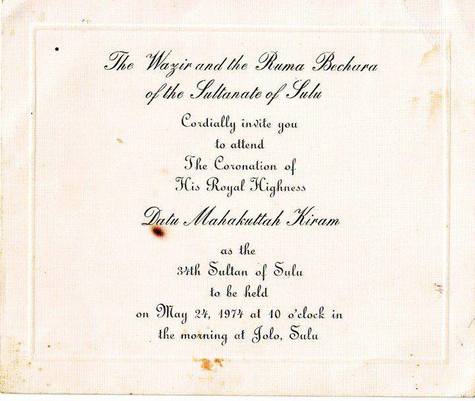 The Wazir and the Ruma Bechara
of the Sultanate of Sulu
Cordially invite you
to attend
The Coronation of
His Royal Highness
Datu Mahakuttah Kiram
as the
34th Sultan of Sulu
to be held
on May 24, 1974 at 10 o'clock in
the morning at Jolo, Sulu